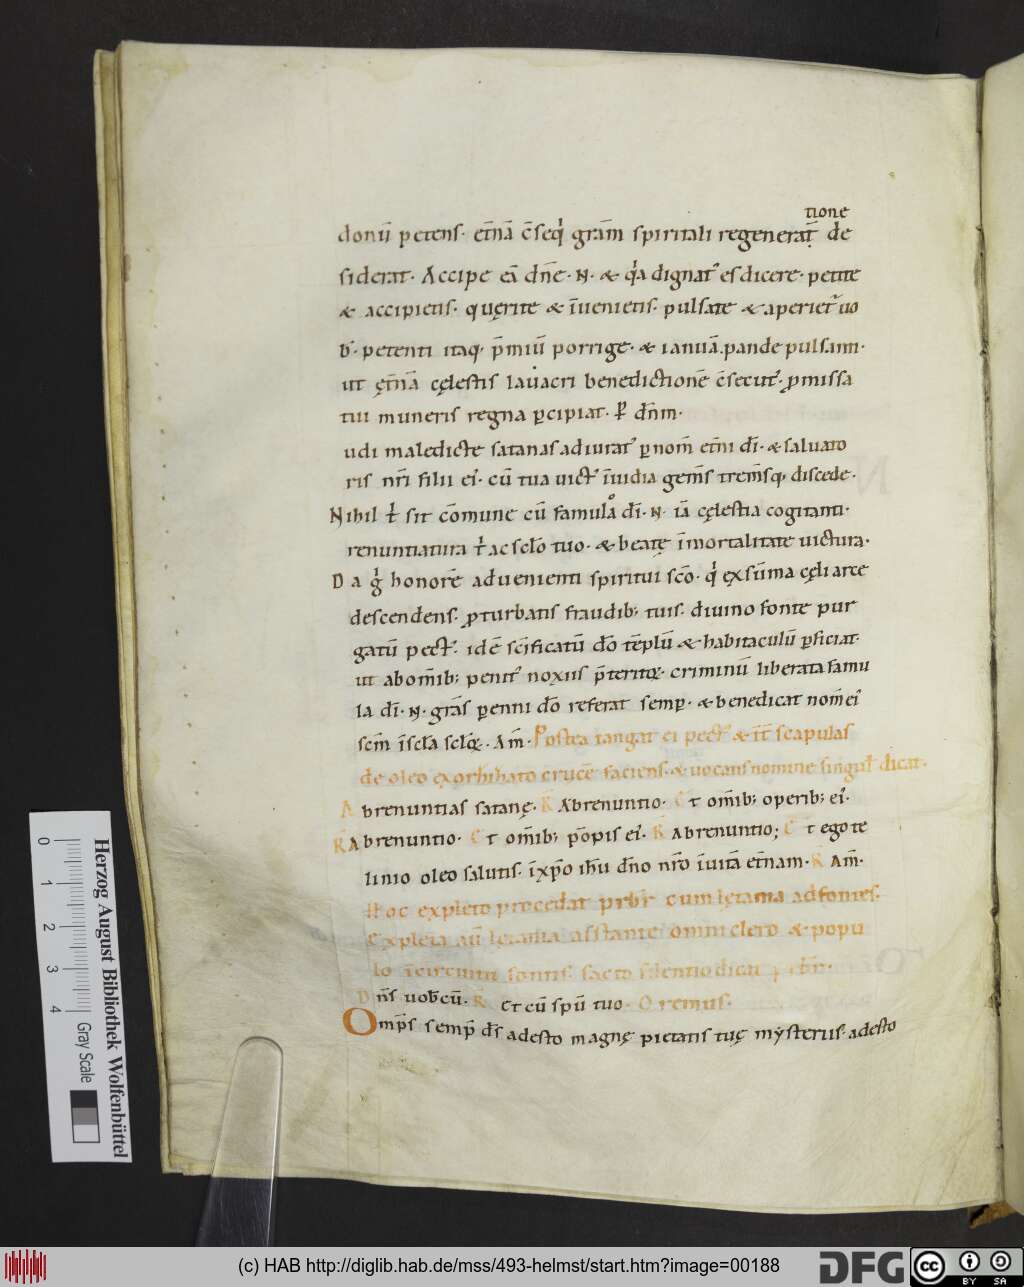 tione
donū petens· etn̄ā c̄seqͥ gram̄ spiritali regenerat̄ de
siderat· Accipe eā dn̄e·N· & qͥa dignatꝰ es dicere· petite
& accipietis· querite & īuenietis· pulsate & aperiet᷑ uo
b'· petenti itaq· p̄miū porrige· & ianuā pande pulsanti·
ut ętn̄ā cęlestis lauacri benedictionē c̄secutꝰ· ꝓmissa
tui muneris regna ꝑcipiat· ꝑ dn̄m·
udi maledicte satanas adiuratꝰ ꝑ nom̄ etn̄i dī· & saluato
ris nr̄i filii eiꝰ· cū tua uictꝰ īuidia gem̄s trem̄sq; discede·
Nihil t' sit cōmune cū famulo̊ dī·N· iā cęlestia cogitanti·
renuntiatura t' ac sclo̅ tuo· & beatę īmortalitate uictura·
Da gͥ honorē aduenienti spiritui sco̅· qͥ ex sūma cęli arce
descendens· ꝓturbatis fraudib; tuis· diuino fonte pur
gatū pectꝰ· idē sc̄ificatū dō tēplū & habitaculū ꝑficiat·
ut ab om̄ib; penitꝰ noxiis p̄teritoꝝ criminū liberata famu
la dī·N· gras̄ ꝑenni dō referat semꝑ· & benedicat nom̄ eiꝰ
scm̄ ī scla̅ scloꝝ· Am̄· Postea tangat ei pectꝰ & īt̄ scapulas
de oleo exorcizato crucē faciens· & uocans nomine singul' dicat·
Abrenuntias satanę· R Abrenuntio· Et om̄ib; operib; eiꝰ·
R Abrenuntio· Et om̄ib; pōpis eiꝰ· R Abrenuntio; Et ego te
linio oleo salutis· ī xp̄o ihū dn̄o nr̄o ī uitā etn̄am· R Am̄·
Hoc expleto procedat prbr̄ cum letania ad fontes·
Expleta aū letania astante omni clero & popu
lo ī circuitu fontis· facto silentio dicat prbr̄·
Dn̄s uobcū· R Et cū spū tuo· Oremus·
Omp̄s semp̄ ds̄ adesto magnę pietatis tuę mẏsteriis· adesto
0 1 2 3 4
Gray Scale
Herzog August Bibliothek Wolfenbüttel
(c) HAB http://diglib.hab.de/mss/493-helmst/start.htm?image=00188
DFG
cc
BY SA